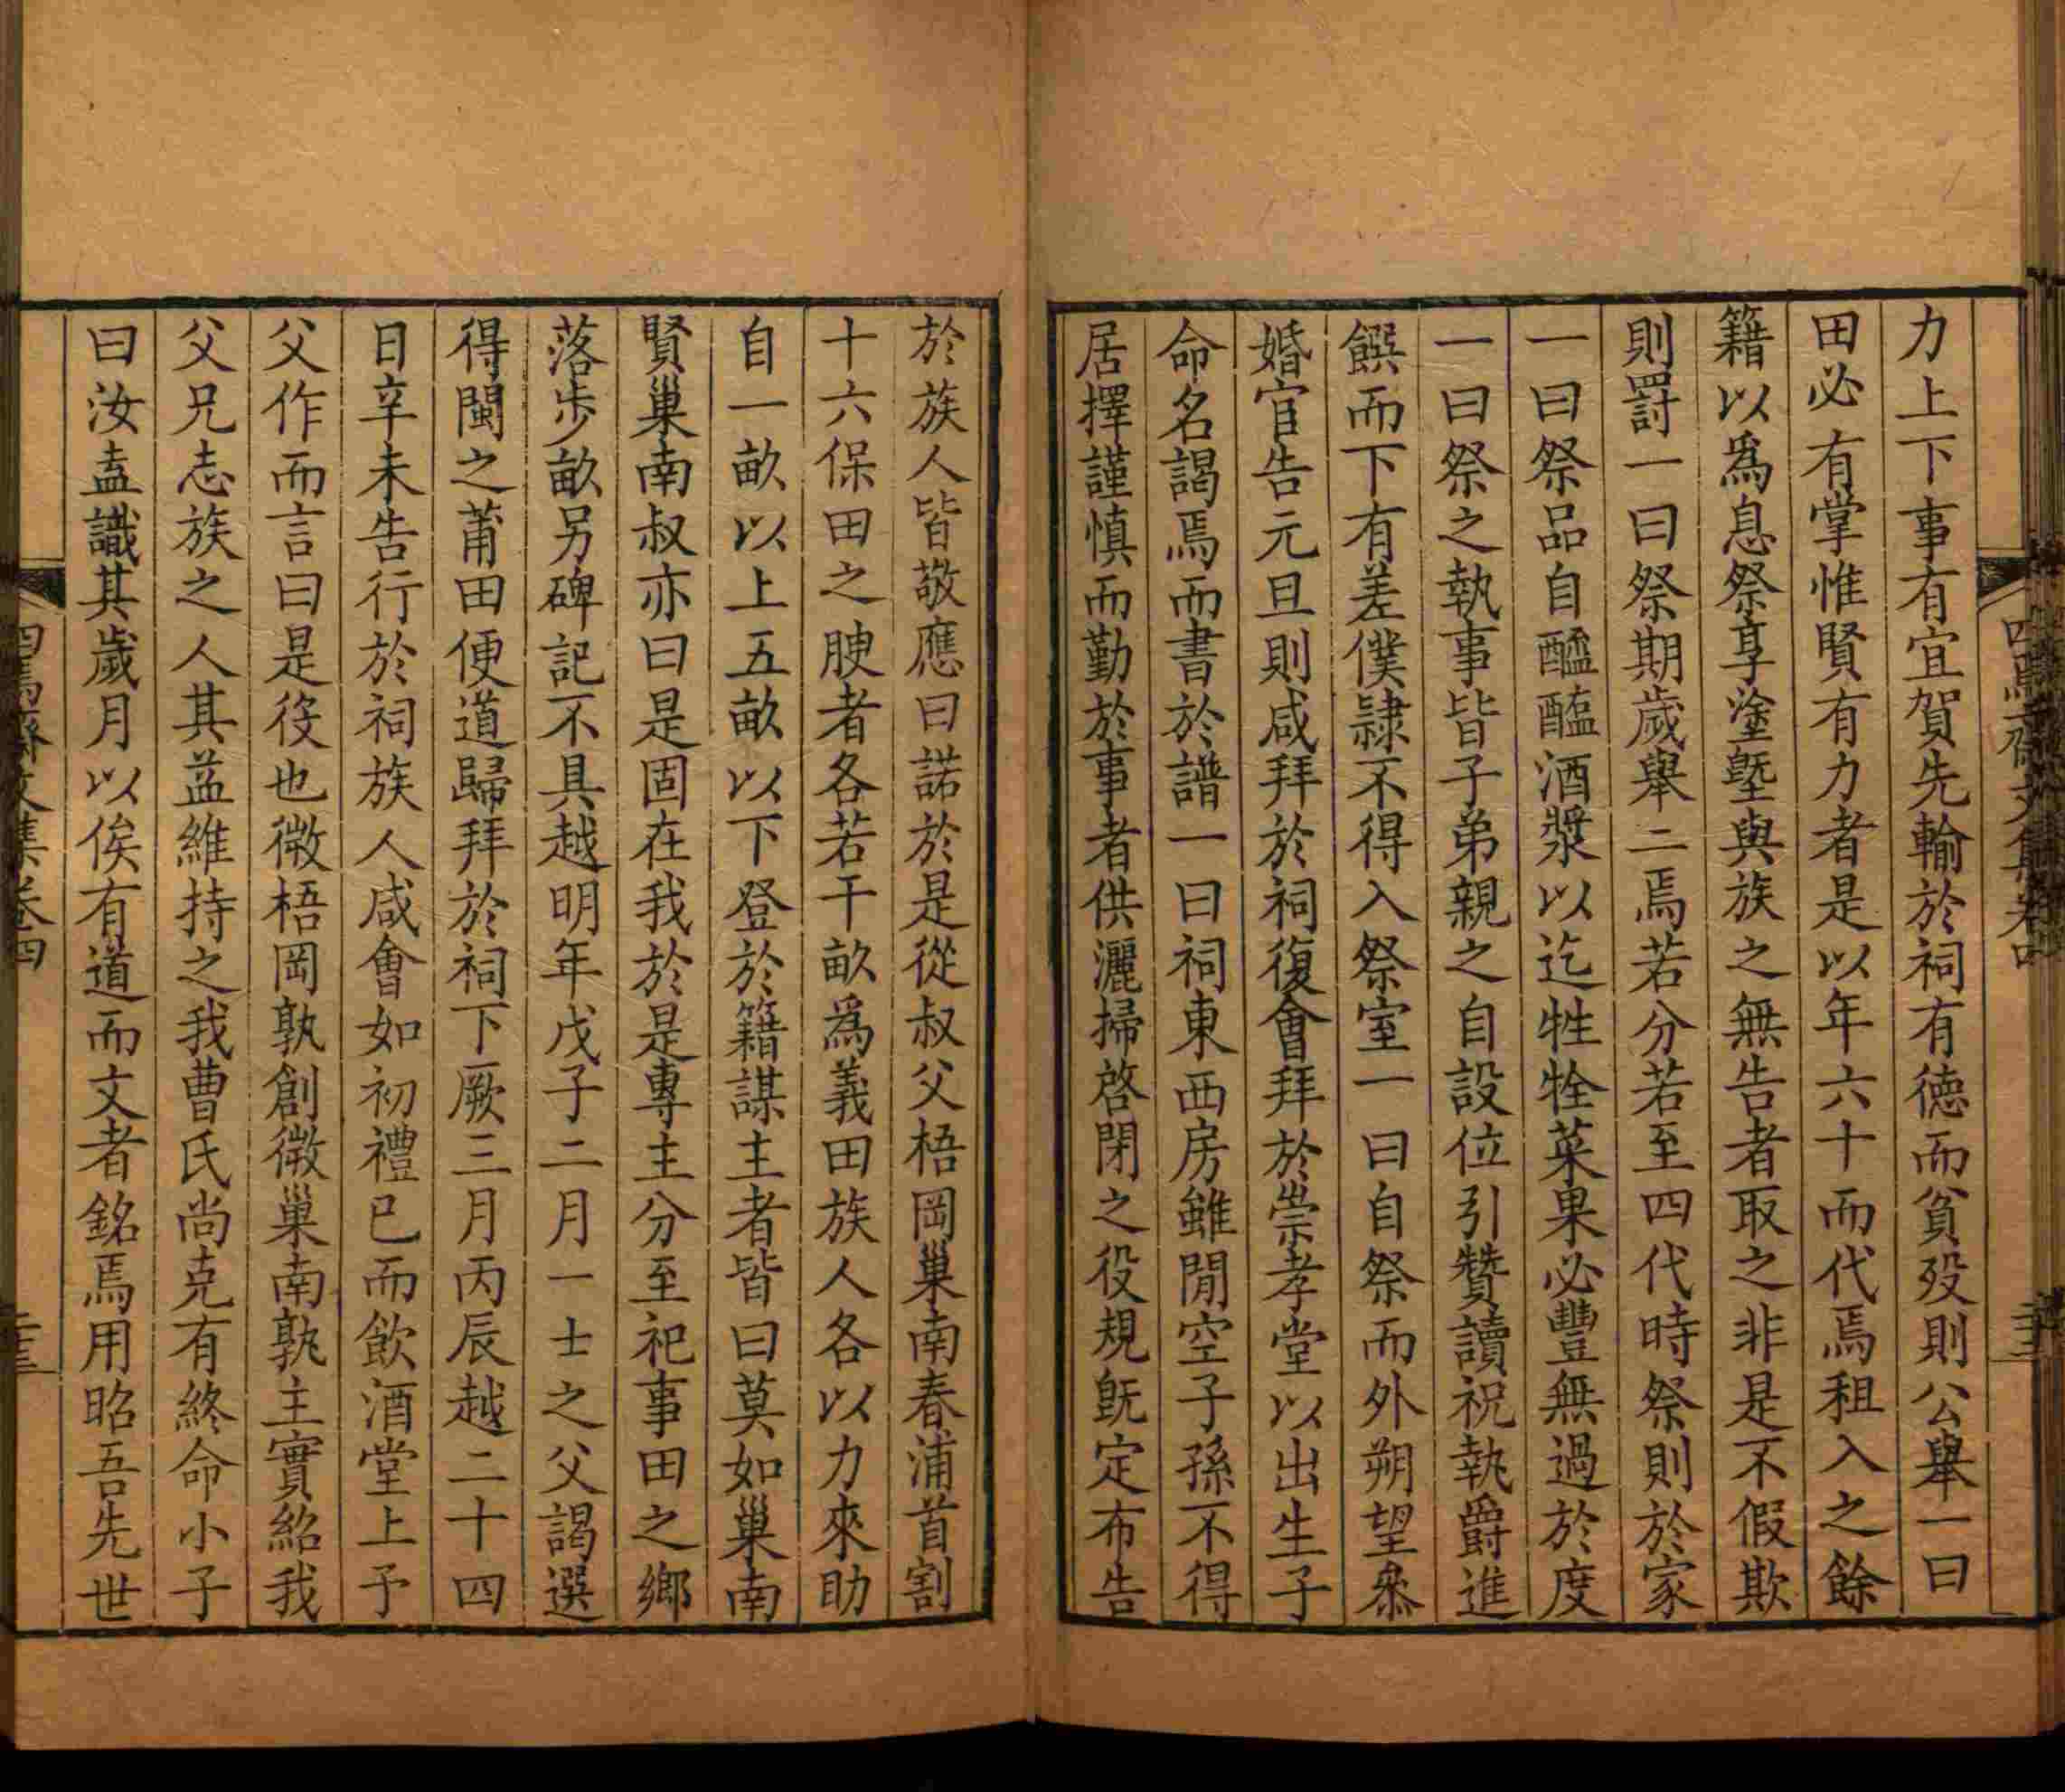 力上下事有宜賀先輸於祠有德而貧歿則公舉一曰
田必有掌惟賢有力者是以年六十而代焉租入之餘
籍以爲息祭享塗墍與族之無告者取之非是不假欺
則罰一曰祭期歲舉二焉若分若至四代時祭則於家
一曰祭品自醯醢酒漿以迄牲牷菜果必豐無過於度
一曰祭之執事皆子弟親之自設位引贊讀祝執爵進
饌而下有差僕隷不得入祭室一曰自祭而外朔望叅
婚官告元旦則咸拜於祠復會拜於崇孝堂以出生子
命名謁焉而書於譜一曰祠東西房雖閒空子孫不得
居擇謹慎而勤於事者供灑掃啓閉之役規旣定布告
於族人皆敬應曰諾於是從叔父梧岡巢南春浦首割
十六保田之腴者各若干畝爲義田族人各以力來助
自一畝以上五畝以下登於籍謀主者皆曰莫如巢南
賢巢南叔亦曰是固在我於是專主分至祀事田之鄉
落步畝另碑記不具越明年戊子二月一士之父謁選
得閩之莆田便道歸拜於祠下厥三月丙辰越二十四
日辛未告行於祠族人咸會如初禮已而飲酒堂上予
父作而言曰是役也微梧岡孰創微巢南孰主實紹我
父兄志族之人其益維持之我曹氏尚克有終命小子
曰汝盍識其歲月以俟有道而文者銘焉用昭吾先世
四焉齋文集卷四